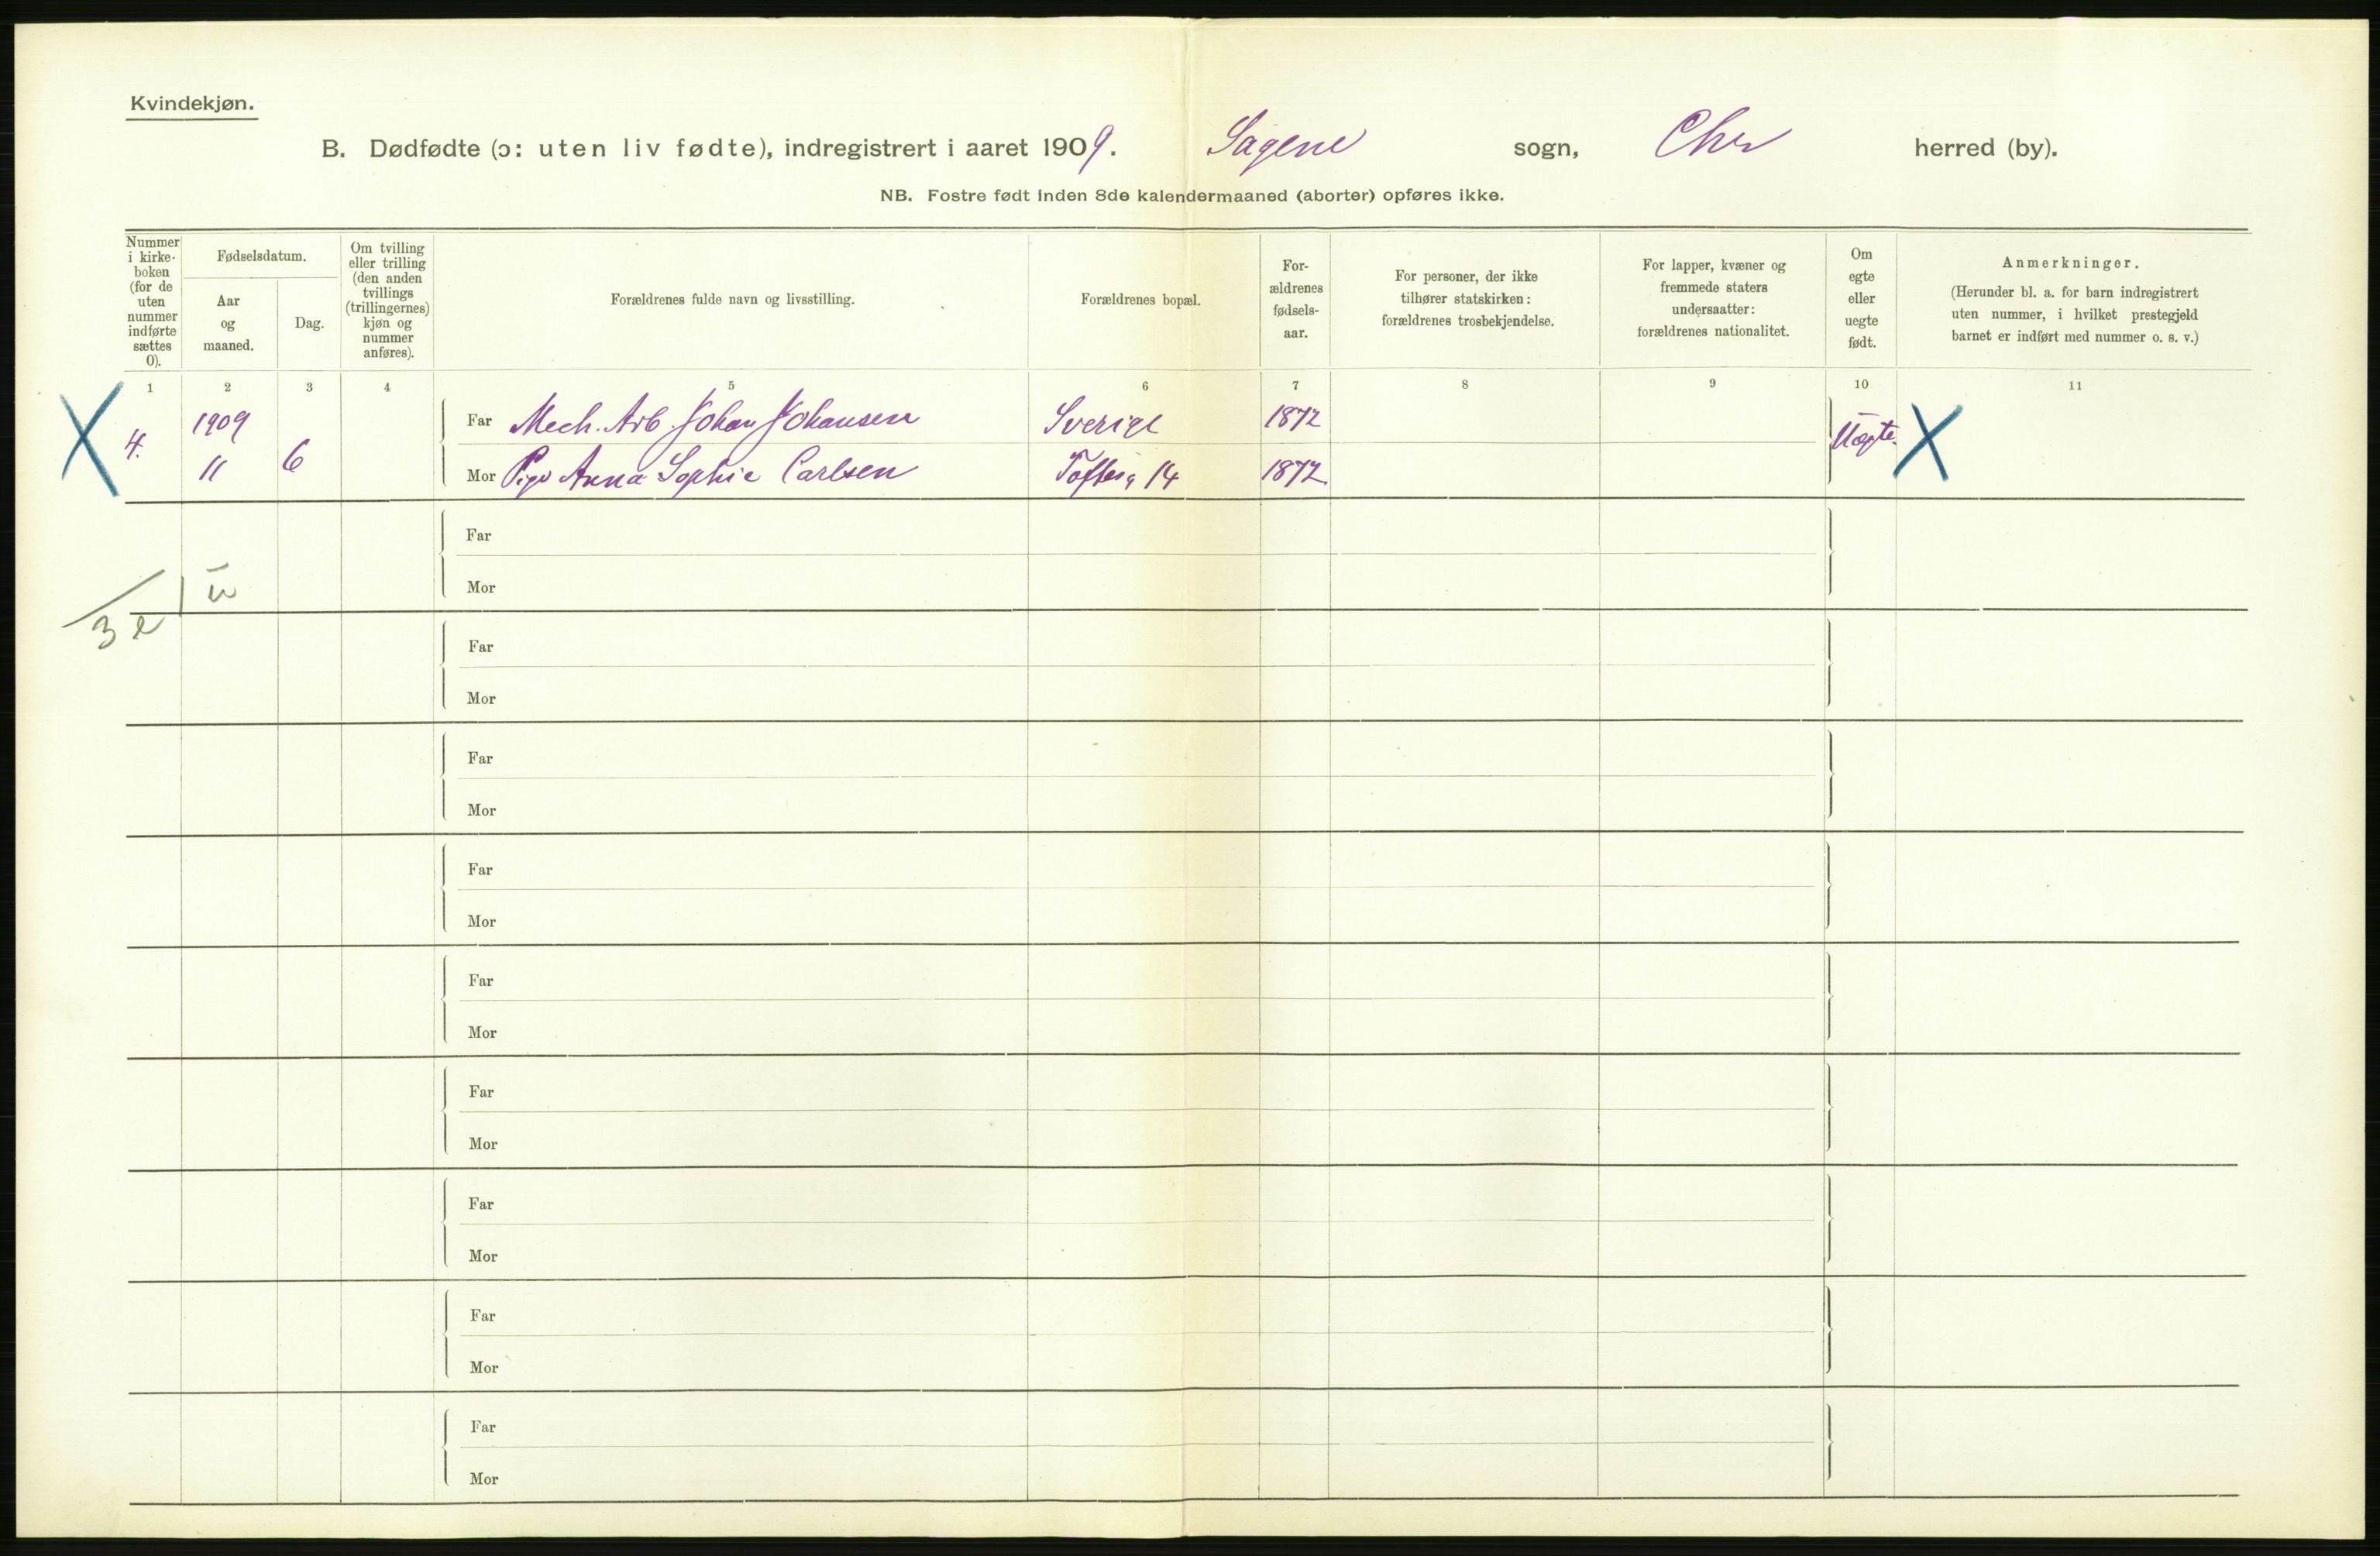 Kvindekjøn.
B. Dødfødte (ɔ: uten liv fødte), indregistrert i aaret 1909. Sagene sogn, Chr herred (by).
NB. Fostre født inden 8de kalendermaaned (aborter) opføres ikke.
Nummer
i kirke-
boken
(for de
uten
nummer
indførte
sættes
0).
Fødselsdatum.
Aar
og
maaned.
Dag.
Om tvilling
eller trilling
(den anden
tvillings
(trillingernes)
kjøn og
nummer
anføres).
Forældrenes fulde navn og livsstilling.
Forældrenes bopæl.
For-
ældrenes
fødsels-
aar.
For personer, der ikke
tilhører statskirken:
forældrenes trosbekjendelse.
For lapper, kvæner og
fremmede staters
undersaatter:
forældrenes nationalitet.
Om
egte
eller
uegte
født.
Anmerkninger.
(Herunder bl. a. for barn indregistrert
uten nummer, i hvilket prestegjeld
barnet er indført med nummer o. s. v.)
1 2 3 4 5 6 7 8 9 10 11
1909 Far Mech. Arb Johan Johansen Sverige 1872
4. 11 6 Mor Pige Anna Sophie Carlsen Toftesg 14 1872 Uægte.
Far
Mor
1 ū
3 e
Far
Mor
Far
Mor
Far
Mor
Far
Mor
Far
Mor
Far
Mor
Far
Mor
Far
Mor